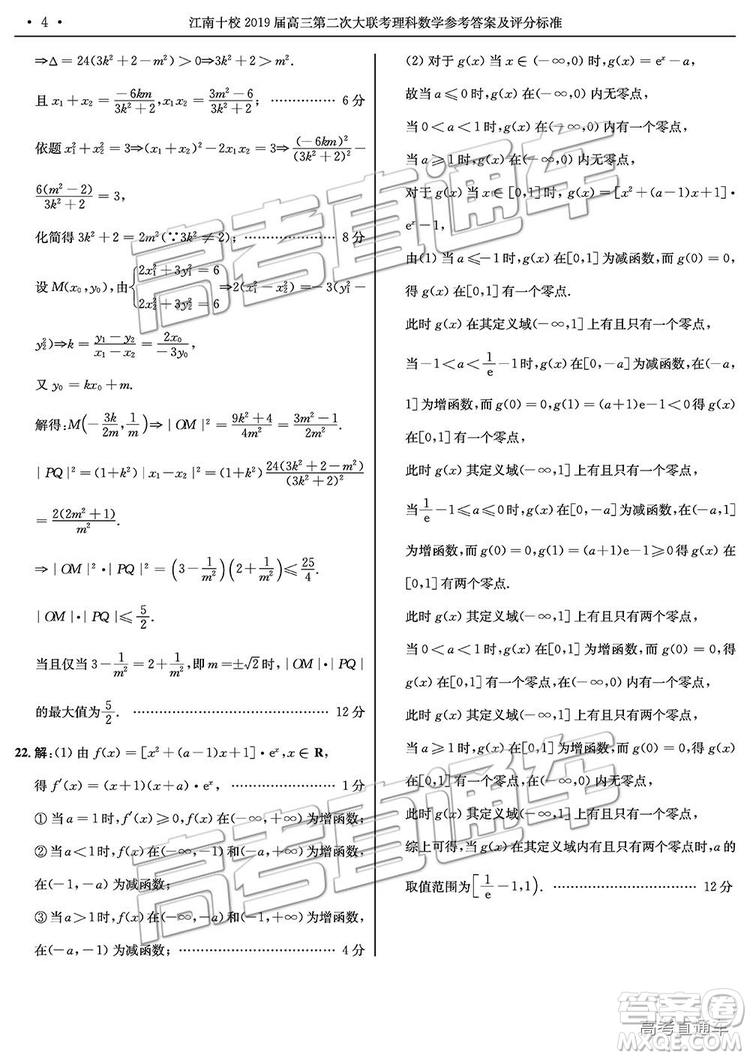 • 4 •
江南十校 2019 届高三第二次大联考理科数学参考答案及评分标准
⇒Δ=24(3k²+2-m²)>0⇒3k²+2>m².
且 x₁+x₂=\frac{-6km}{3k²+2},x₁x₂=\frac{3m²-6}{3k²+2}; …………… 6 分
依题 x₁²+x₂²=3⇒(x₁+x₂)²-2x₁x₂=3⇒\frac{(-6km)²}{(3k²+2)²}-
\frac{6(m²-2)}{3k²+2}=3,
化简得 3k²+2=2m²(∵3k²≠2); …………… 8 分
设 M(x₀,y₀),由{2x₁²+3y₁²=6
2x₂²+3y₂²=6 ⇒2(x₁²-x₂²)=-3(y₁²-
y₂²)⇒k=\frac{y₁-y₂}{x₁-x₂}=\frac{2x₀}{-3y₀},
又 y₀=kx₀+m.
解得:M(-\frac{3k}{2m},\frac{1}{m})⇒|OM|²=\frac{9k²+4}{4m²}=\frac{3m²-1}{2m²}.
|PQ|²=(1+k²)|x₁-x₂|²=(1+k²)\frac{24(3k²+2-m²)}{(3k²+2)²}
=\frac{2(2m²+1)}{m²}.
⇒|OM|²·|PQ|²=(3-\frac{1}{m²})(2+\frac{1}{m²})≤\frac{25}{4}.
|OM|·|PQ|≤\frac{5}{2}.
当且仅当 3-\frac{1}{m²}=2+\frac{1}{m²},即 m=±√2时,|OM|·|PQ|
的最大值为\frac{5}{2}. …………… 12 分
22. 解:(1) 由 f(x)=[x²+(a-1)x+1]·eˣ,x∈R,
得 f′(x)=(x+1)(x+a)·eˣ, …………… 1 分
① 当 a=1时,f′(x)≥0,f(x)在(-∞,+∞)为增函数;
② 当 a<1时,f(x)在(-∞,-1)和(-a,+∞)为增函数,
在(-1,-a)为减函数;
③ 当 a>1时,f(x)在(-∞,-a)和(-1,+∞)为增函数,
在(-a,-1)为减函数; …………… 4 分
(2) 对于 g(x) 当 x∈(-∞,0) 时,g(x)=eˣ-a,
故当 a≤0 时,g(x)在(-∞,0) 内无零点,
当 0<a<1时,g(x)在(-∞,0)内有一个零点,
当 a≥1 时,g(x)在(-∞,0) 内无零点,
对于 g(x) 当 x∈[0,1]时,g(x)=[x²+(a-1)x+1]·
eˣ-1,
由(1) 当 a≤-1时,g(x)在[0,1]为减函数,而 g(0)=0,
g(x)在[0,1]有一个零点.
此时 g(x) 在其定义域(-∞,1] 上有且只有一个零点,
当-1<a<\frac{1}{e}-1时,g(x)在[0,-a]为减函数,在(-a,
1]为增函数,而 g(0)=0,g(1)=(a+1)e-1<0 得 g(x)
在[0,1]有一个零点,
此时 g(x) 其定义域(-∞,1] 上有且只有一个零点,
当\frac{1}{e}-1≤a≤0时,g(x)在[0,-a]为减函数,在(-a,1]
为增函数,而 g(0)=0,g(1)=(a+1)e-1≥0 得 g(x) 在
[0,1]有两个零点.
此时 g(x) 其定义域(-∞,1] 上有且只有两个零点,
当 0<a<1时,g(x)在[0,1]为增函数,而 g(0)=0,
g(x)在[0,1]有一个零点,
此时 g(x) 其定义域(-∞,1] 上有且只有两个零点,
当 a≥1时,g(x)在[0,1]为增函数,而 g(0)=0,g(x)在
[0,1]有一个零点,
此时 g(x) 其定义域(-∞,1] 上有且只有一个零点,
综上可得,当 g(x) 在其定义域内有且只有两个零点时,a的
取值范围为[\frac{1}{e}-1,1). …………… 12 分
高考直通车
高考直通车
高考直通车